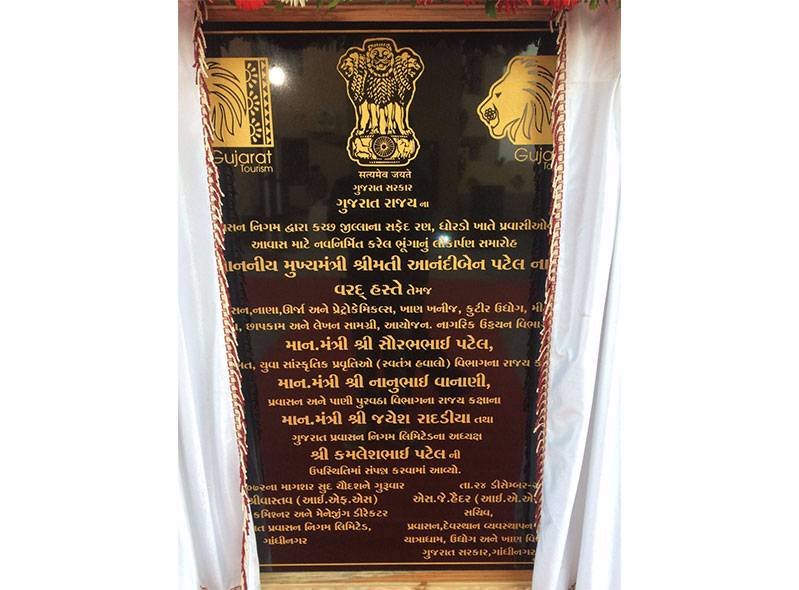 Gujarat
Tourism
Guja
To
सत्यमेव जयते
ગુજરાત સરકાર
ગુજરાત રાજય ના
ાસન નિગમ દ્વારા કચ્છ જીલ્લાના સફેદ રણ, ધોરડો ખાતે પ્રવાસીઓન
આવાસ માટે નવનિર્મિત કરેલ ભૂંગાનું લોકાર્પણ સમારોહ
માનનીય મુખ્યમંત્રી શ્રીમતી આનંદીબેન પટેલ ના
વરદ્ હસ્તે તેમજ
સન,નાણા,ઊર્જા અને પ્રેટ્રોકેમિકલ્સ, ખાણ ખનીજ, કુટીર ઉદ્યોગ, મી
, છાપકામ અને લેખન સામગ્રી, આયોજન. નાગરિક ઉડ્ડયન વિભા
માન.મંત્રી શ્રી સૌરભભાઈ પટેલ,
મત, યુવા સાંસ્કૃતિક પ્રવૃતિઓ (સ્વતંત્ર હવાલો) વિભાગના રાજય ક
માન.મંત્રી શ્રી નાનુભાઈ વાનાણી,
પ્રવાસન અને પાણી પુરવઠા વિભાગના રાજય કક્ષાના
માન.મંત્રી શ્રી જયેશ રાદડીયા તથા
ગુજરાત પ્રવાસન નિગમ લિમિટેડના અધ્યક્ષ
શ્રી કમલેશભાઈ પટેલ ની
ઉપસ્થિતિમાં સંપન્ન કરવામાં આવ્યો.
૦૭૨ના માગશર સુદ ચૌદશને ગુરૂવાર
તા.૨૪ ડીસેમ્બર-૨
શ્રીવાસ્તવ (આઈ.એફ.એસ)
એસ.જે.હૈદર (આઈ.એ.એ
કમિશ્નર અને મેનેજીંગ ડીરેકટર
સચિવ,
ત પ્રવાસન નિગમ લિમિટેડ,
પ્રવાસન,દેવસ્થાન વ્યવસ્થાપન
ગાંધીનગર
યાત્રાધામ, ઉદ્યોગ અને ખાણ વિ
ગુજરાત સરકાર,ગાંધીનગ